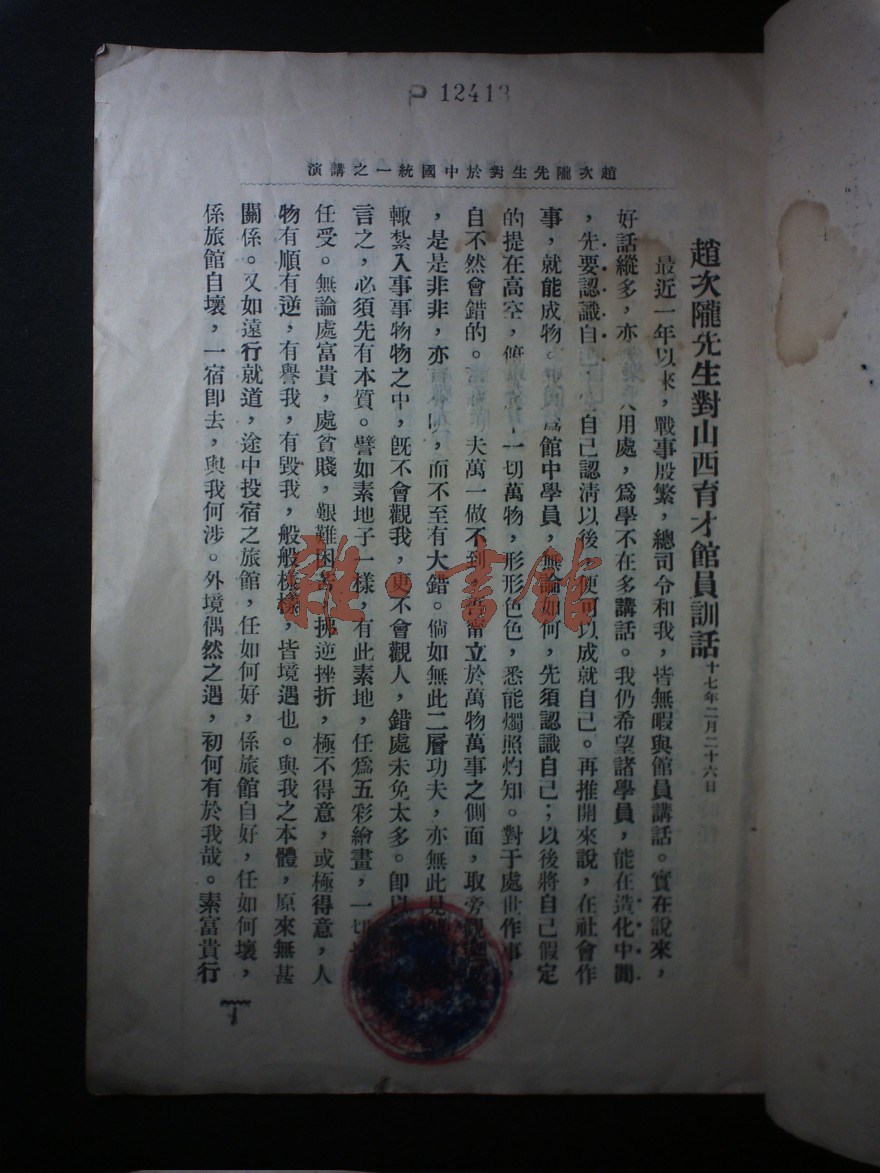 P 12413
趙次隴先生對於中國統一之講演
趙次隴先生對山西育才館員訓話 十七年二月二十六日
最近一年以來，戰事殷繁，總司令和我，皆無暇與館員講話。實在說來，
好話縱多，亦 用處，爲學不在多講話。我仍希望諸學員，能在造化中間
，先要認識自己， 自己認清以後，便可以成就自己。再推開來說，在社會作
事，就能成物。 館中學員，無論如何，先須認識自己；以後將自己假定
的提在高空， 一切萬物，形形色色，悉能燭照灼知。對于處世作事，
自不然會錯的。 夫萬一做不到，吾當立於萬物萬事之側面，取旁觀
，是是非非，亦 ，而不至有大錯。倘如無此二層功夫，亦無此見
輙紮入事事物物之中，旣不會觀我，更不會觀人，錯處未免太多。卽以
言之，必須先有本質。譬如素地子一樣，有此素地，任爲五彩繪畫，一切
任受。無論處富貴，處貧賤，艱難困苦，拂逆挫折，極不得意，或極得意，人
物有順有逆，有譽我，有毀我，般般樣樣，皆境遇也。與我之本體，原來無甚
關係。又如遠行就道，途中投宿之旅館，任如何好，係旅館自好，任如何壞，
係旅館自壞，一宿卽去，與我何涉。外境偶然之遇，初何有於我哉。素富貴行
一
雜·書館